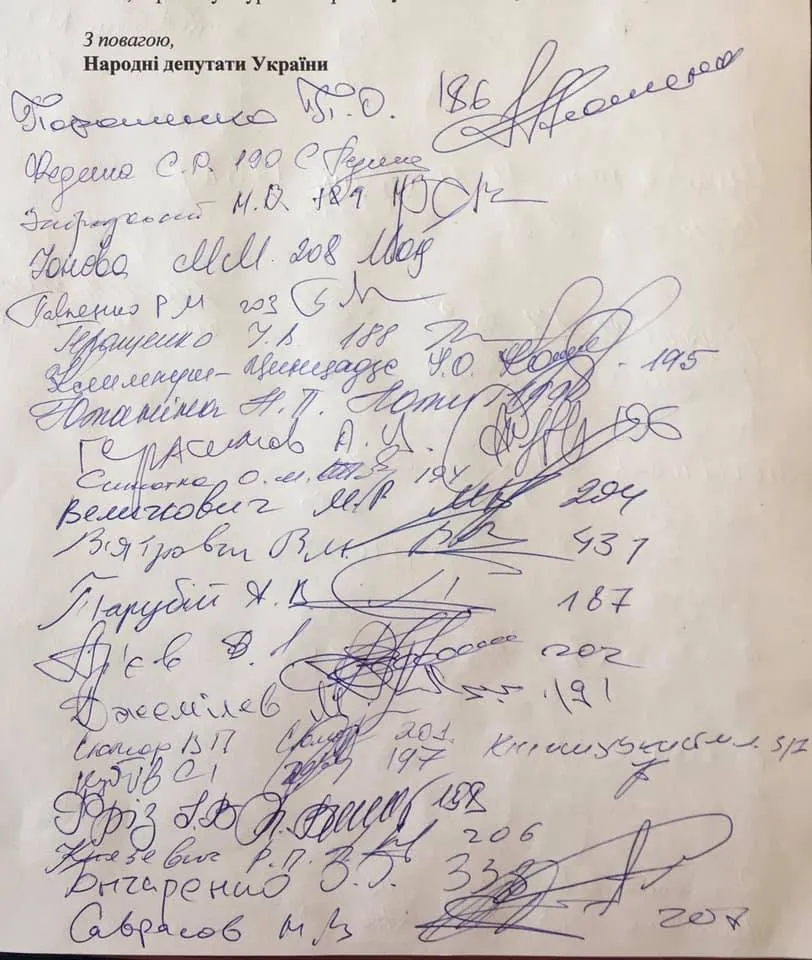 З повагою,
Народні депутати України
Порошенко П.О. 186
Федина С.Р. 190
М.В. 184
Іонова М.М. 208
Павленко Р М 203
Геращенко І.В. 188
Климпуш-Цинцадзе І.О. 195
Южаніна Н.П.
Герасимов А.В. 196
Синютка О.М. 194
Величкович М.Р. 204
В'ятрович В.М. 431
Парубій А.В 187
Ар'єв В.І 202
Джемілєв М. 191
Сюмар В П 201
Кубів С І 197
Фріз І.В 198
Князевич Р.П. 206
Бондаренко О.О. 338
Саврасов М.В 207